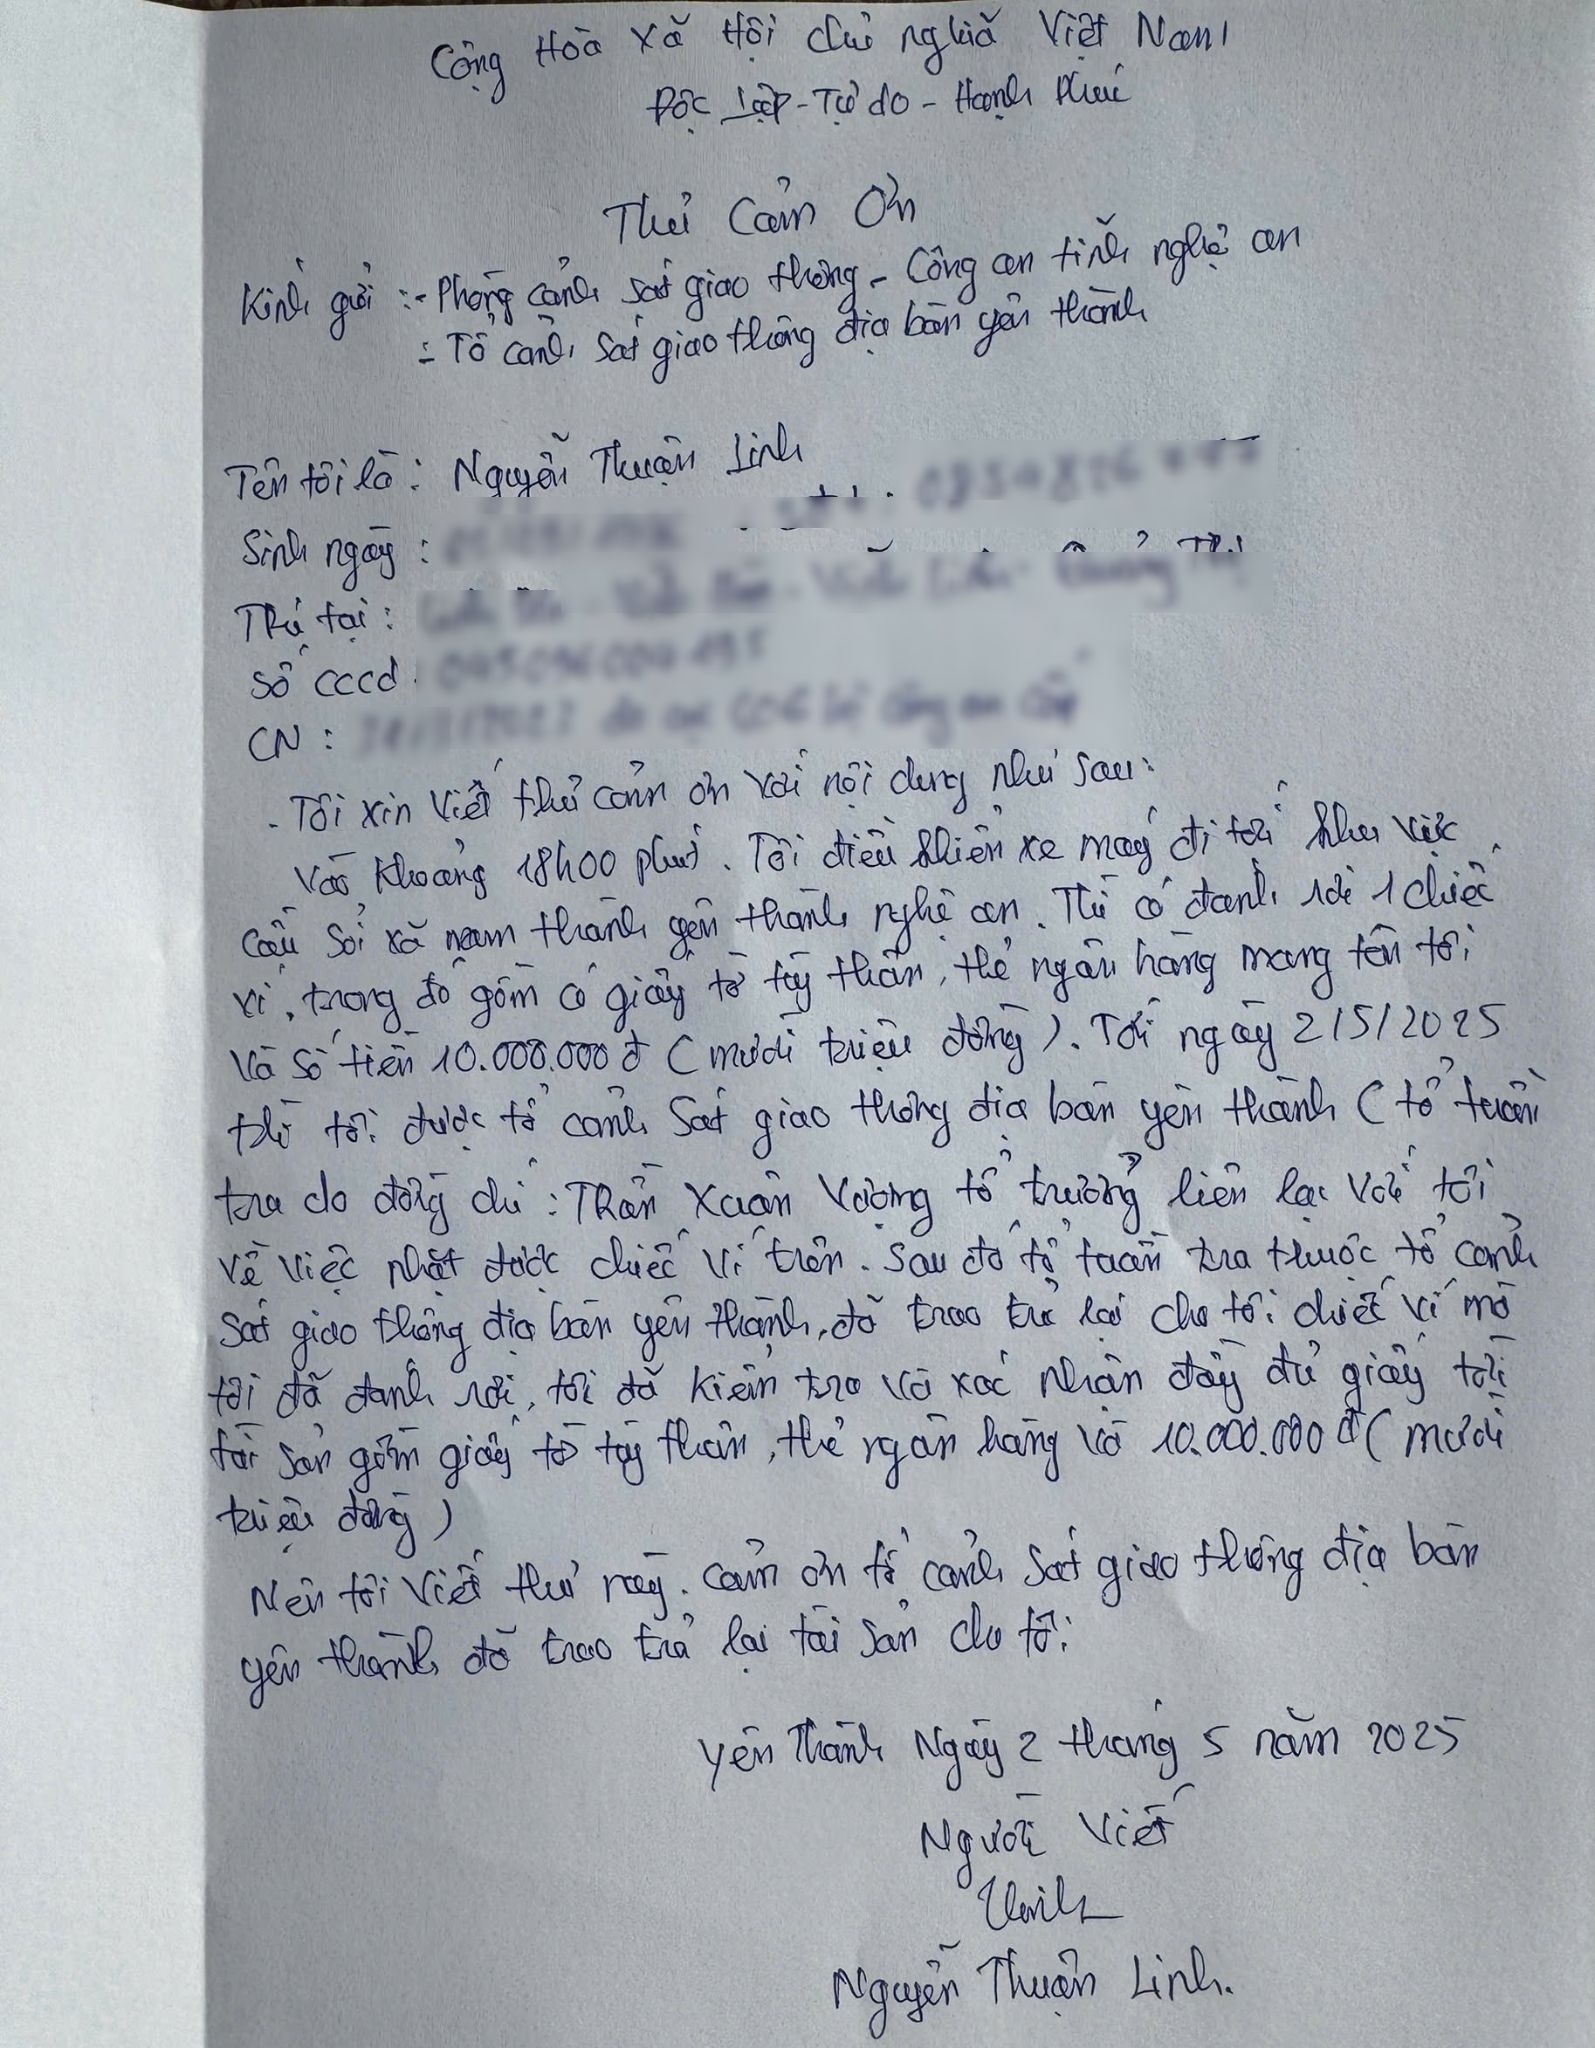 Cộng Hoà Xã Hội chủ nghĩa Việt Nam
Độc Lập - Tự do - Hạnh Phúc
Thư Cảm Ơn
Kính gửi : - Phòng cảnh sát giao thông - Công an tỉnh nghệ an
- Tổ cảnh sát giao thông địa bàn yên thành
Tên tôi là : Nguyễn Thuận Linh
Sinh ngày :
Trú tại :
Số cccd
CN :
- Tôi xin viết thư cảm ơn với nội dung như sau:
Vào khoảng 18h00 phút. Tôi điều khiển xe máy đi tới khu vực
cầu sỏi xã nam thành yên thành nghệ an. Thì có đánh rơi 1 chiếc
ví, trong đó gồm có giấy tờ tùy thân, thẻ ngân hàng mang tên tôi
và số tiền 10.000.000 đ ( mười triệu đồng ). Tới ngày 2/5/2025
thì tôi được tổ cảnh sát giao thông địa bàn yên thành ( tổ tuần
tra do đồng chí : Trần Xuân Vượng tổ trưởng liên lạc với tôi
về việc nhặt được chiếc ví trên. Sau đó tổ tuần tra thuộc tổ cảnh
sát giao thông địa bàn yên thành, đã trao trả lại cho tôi chiếc ví mà
tôi đã đánh rơi, tôi đã kiểm tra và xác nhận đầy đủ giấy tời
tài sản gồm giấy tờ tùy thân, thẻ ngân hàng và 10.000.000 đ ( mười
triệu đồng )
Nên tôi viết thư này. cảm ơn tổ cảnh sát giao thông địa bàn
yên thành đã trao trả lại tài sản cho tôi
Yên Thành Ngày 2 tháng 5 năm 2025
Người viết
Linh
Nguyễn Thuận Linh.